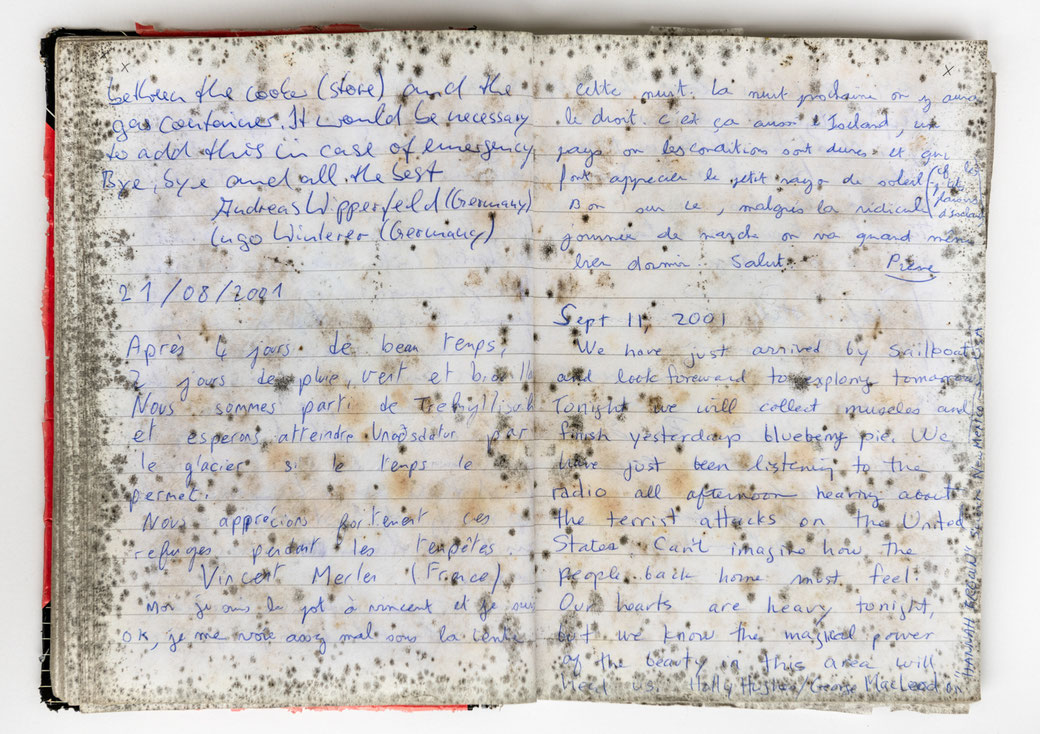 between the cooker (stove) and the
gas container. It would be necessary
to add this in case of emergency.
Bye, bye and all the best
Andreas Wipperfeld (Germany)
Ingo Winterer (Germany)
21/08/2001
Après 4 jours de beau temps,
2 jours de pluie, vent et
Nous sommes parti de
et esperons atteindre par
le glacier si le temps le
permet.
Nous apprécions fortement ces
refuges pendant les tempêtes.
Vincent Merler (France)
Moi je suis le pot à vincent et je suis
OK, je me voie assez mal sous la tente
cette nuit. La nuit prochaine on y aura
le droit. c'est ça aussi l'Iseland, un
pays ou les conditions sont dures et qui
font apprecier le petit rayon de soleil
(cf les
d'Iseland
Bon sur ce, malgrés la ridicule
journée de marche on va quand même
bien dormir. Salut.
Pierre
Sept 11, 2001
We have just arrived by sailboat
and look foreward to exploring tomorrow
Tonight we will collect muscles and
finish yesterdays blueberry pie. We
have just been listening to the
radio all afternoon hearing about
the terrist attacks on the United
States. Can't imagine how the
people back home must feel.
Our hearts are heavy tonight,
but we know the magical power
of the beauty in this area will
heal us. Holly /George MacLeod on
"HANNAH BROWN" New Mexico USA
x
x